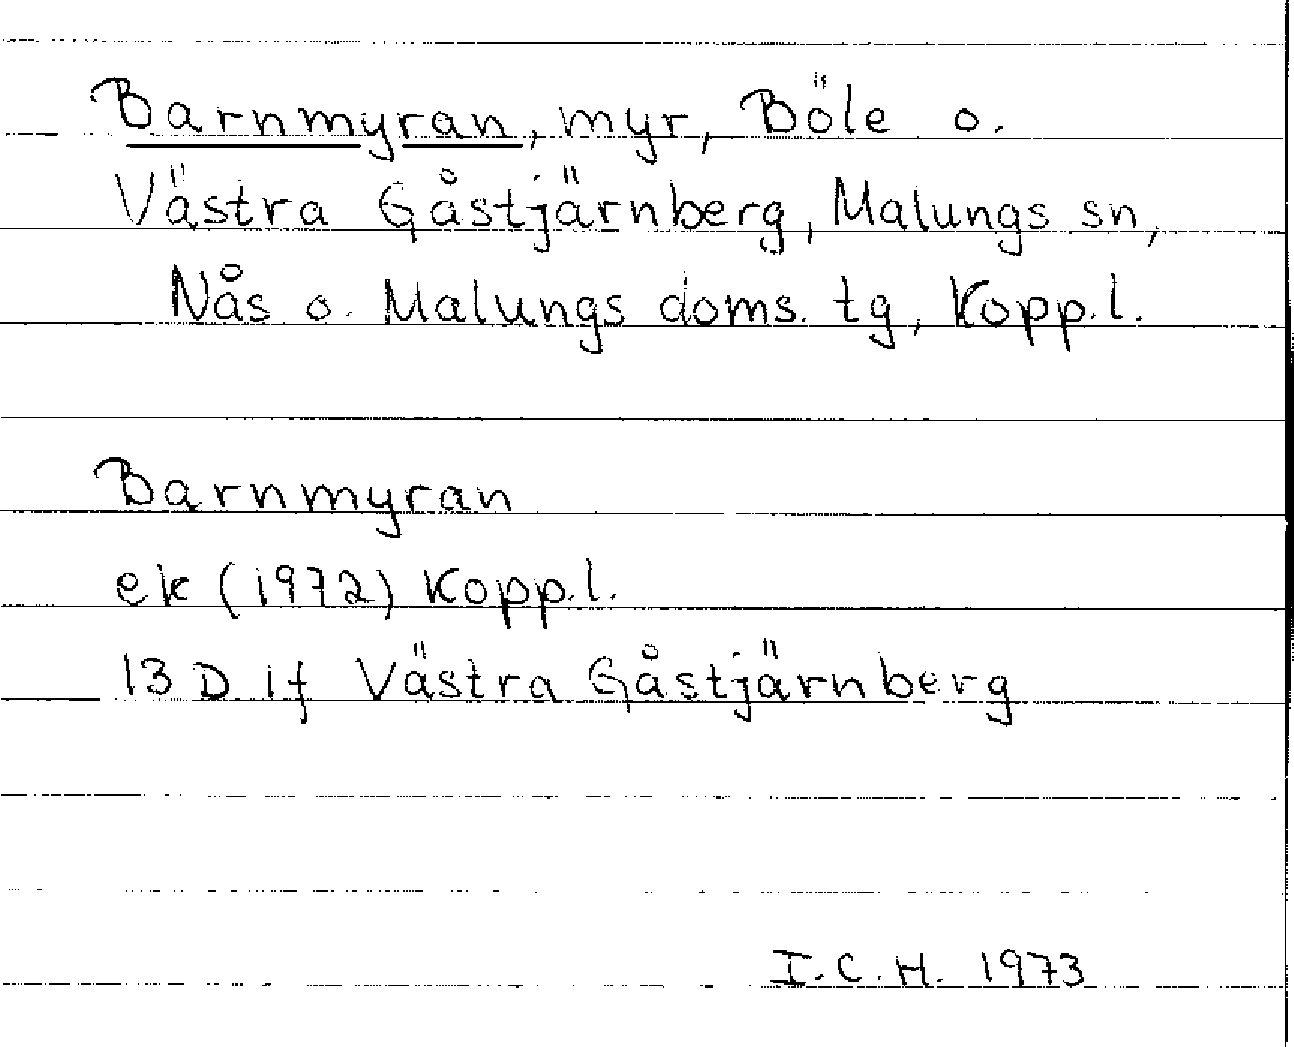 Barnmyran, myr, Böle o.
Västra Gåstjärnberg, Malungs sn,
Nås o. Malungs doms. tg, Kopp.l.
Barnmyran
ek (1972) Kopp.l.
13 D if Västra Gåstjärnberg
I.C.H. 1973